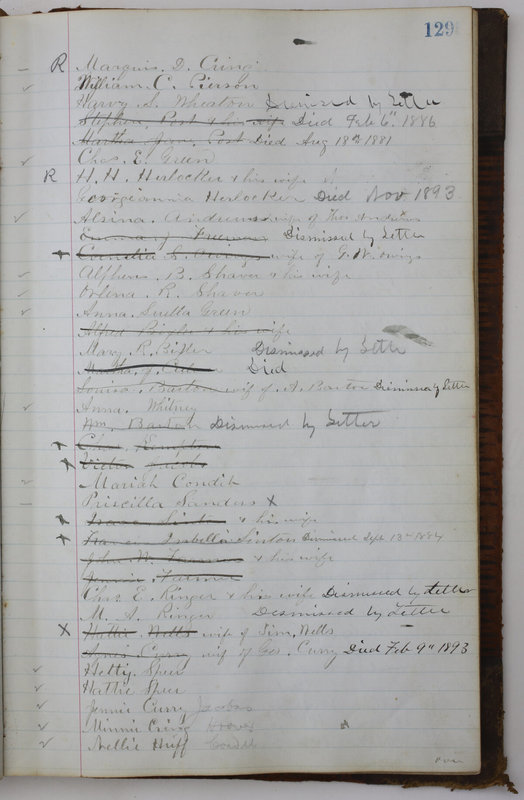 129
R Marquis. D. Cring
William. C. Pierson
Harvy S. Wheaton Dismissed by Letter
Stephen, Post & his wife Died Feb 6th 1886
Martha Jane Post Died Aug 18th 1881
Chas. E. Green
R H. H. Herlocker & his wife
Georgiannia Herlocker Died Nov 1893
Alsina. Andrews wife of Thos Andrews
Emma J. Freeman Dismissed by Letter
wife of G. W. Owings
Alpheus. B. Shaver & his wife
Orlena. R. Shaver
Anna. Luella Green
Alfred & his wife
Mary. R. Dismissed by Letter
Martha J. Died
Louisa. Barton wife of A. Barton Dismissed by Letter
Anna. Whitney
Wm. Barton Dismissed by Letter
Chas.
Victor
Mariah Condit
Priscilla Sanders X
Isaac & his wife
Isabella Dismissed Sept 13th 1884
John W. & his wife
Jennie
Chas. E. Ringer & his wife Dismissed by Letter
M. A. Ringer Dismissed by Letter
X Hattie Wells wife of Jim, Wells
Curry wife of Geo. Curry Died Feb 9th 1893
Hetty. Speer
Hattie Speer
Jennie Curry Jacobs
Minnie Cring
Nellie Huff
over